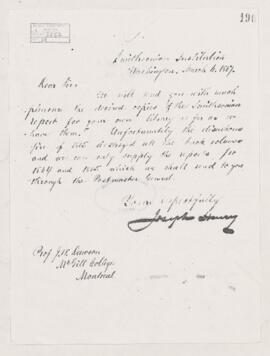 190
Smithsonian Institution
Washington, March 6, 1867.
Dear Sir,
We will send you with much
pleasure the desired copies of the Smithsonian
report for your own library as far as we
have them. Unfortunately the disastrous
fire of 1865 destroyed all the back volumes
and we can only supply the reports for
1864 and 1865 which we shall send to you
through the Postmaster General.
Yours respectfully
Joseph Henry
Prof. J.W. Dawson
McGill College
Montreal